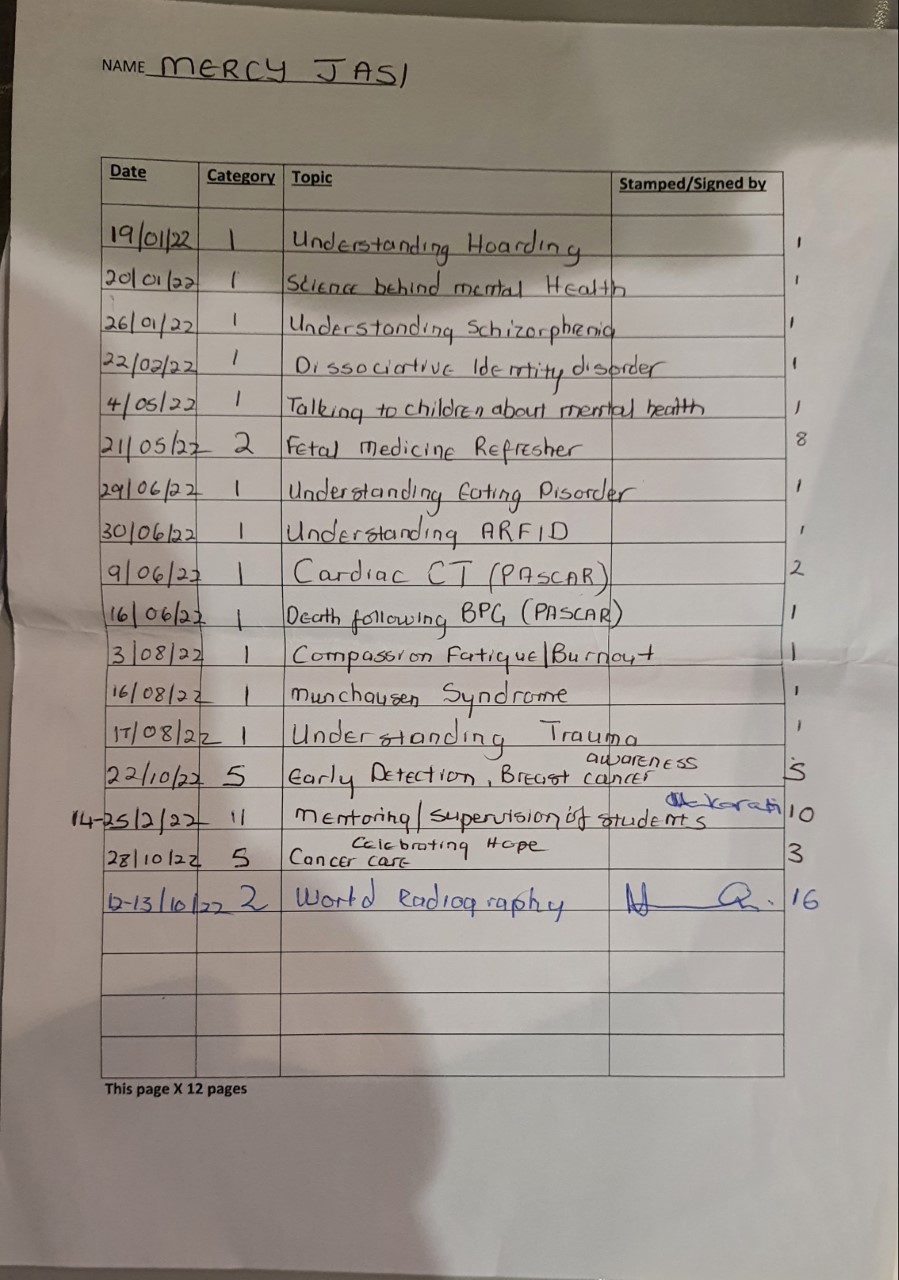 NAME MERCY JASI
Date Category Topic Stamped/Signed by
19/01/22 1 Understanding Hoarding 1
20/01/22 1 Science behind mental Health 1
26/01/22 1 Understanding Schizorphrenia 1
22/02/22 1 Dissociative Identity disorder 1
4/05/22 1 Talking to children about mental health 1
21/05/22 2 Fetal Medicine Refresher 8
29/06/22 1 Understanding Eating Disorder 1
30/06/22 1 Understanding ARFID 1
9/06/22 1 Cardiac CT (PASCAR) 2
16/06/22 1 Death following BPG (PASCAR) 1
3/08/22 1 Compassion Fatigue/Burnout 1
16/08/22 1 munchausen Syndrome 1
17/08/22 1 Understanding Trauma 1
awareness
22/10/22 5 Early Detection, Breast cancer 5
14-25/2/22 11 Mentoring/supervision of students 10
Celebrating Hope
28/10/22 5 Cancer care 3
12-13/10/22 2 World Radiography 16
This page X 12 pages